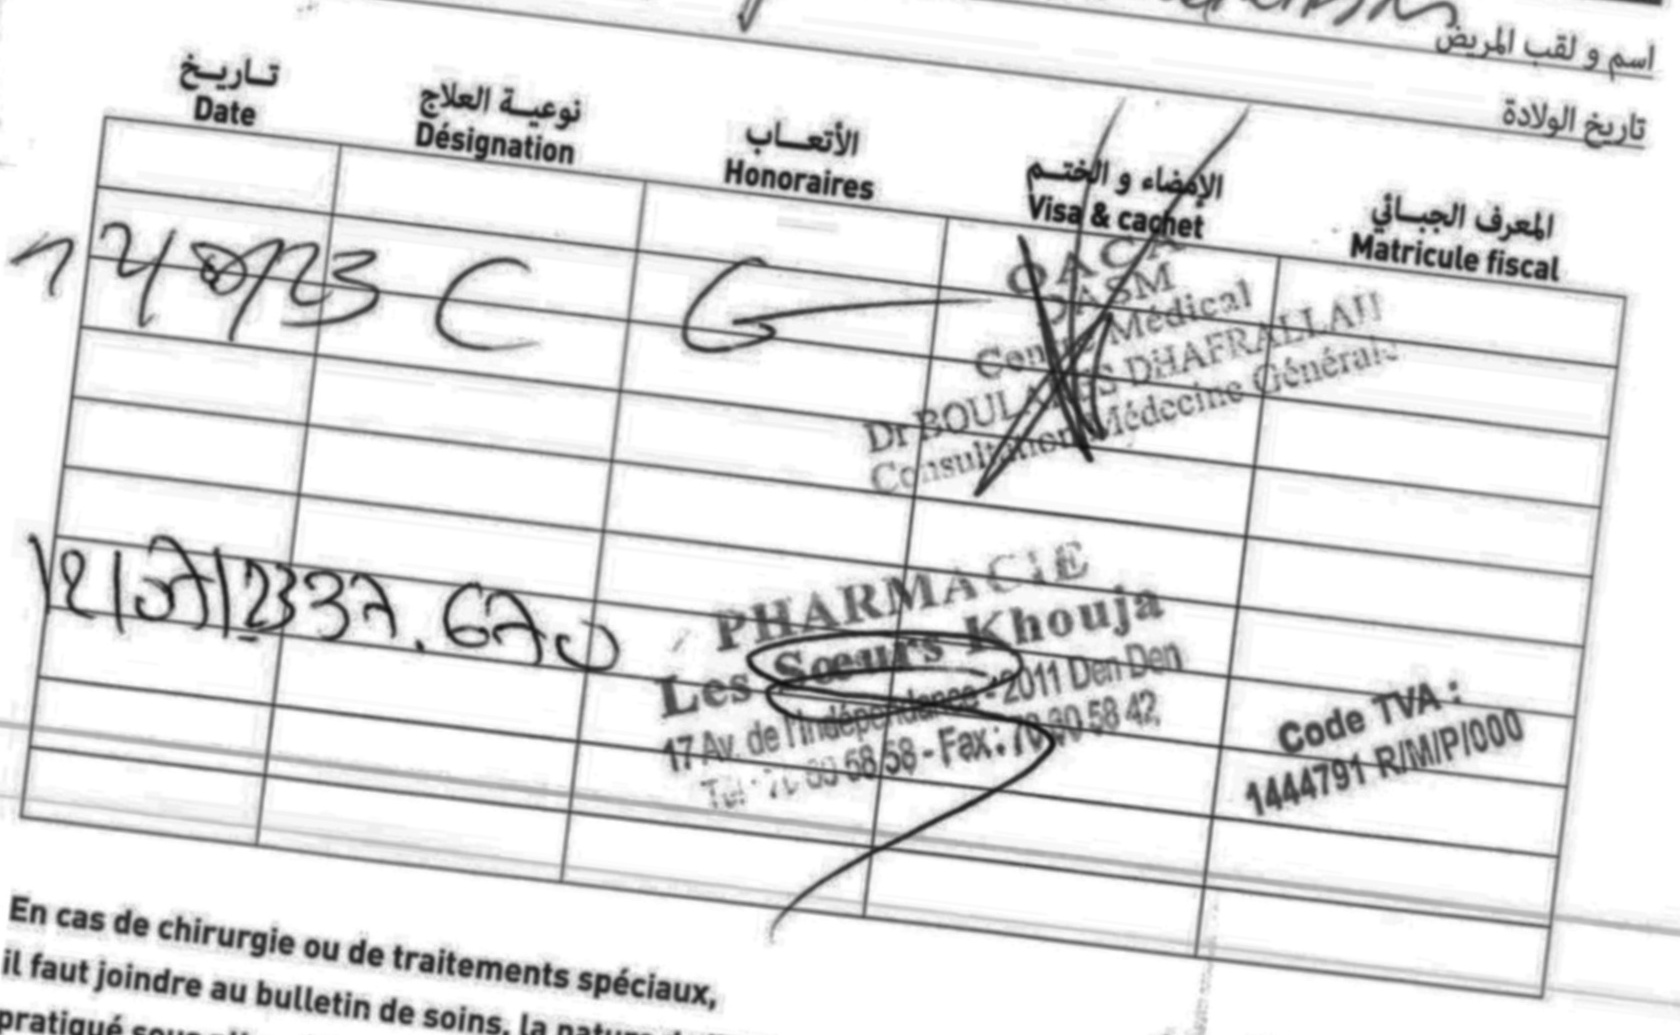 اسم و لقب المريض
تاريخ الولادة
تـاريـخ
Date
نوعيـة العلاج
Désignation
الأتعـاب
Honoraires
الإمضاء و الختـم
Visa & cachet
المعرف الجبـائي
Matricule fiscal
C
OACA
DASM
Centre Médical
Dr DHAFRALLAH
Consultation Médecine Générale
12/07/23 37.670
PHARMACIE
Les Sœurs Khouja
17 Av. de l'Indépendance - 2011 Den Den
58 58 - Fax : 70 60 58 42
Code TVA :
1444791 R/M/P/000
En cas de chirurgie ou de traitements spéciaux,
il faut joindre au bulletin de soins, la nature
pratiqué